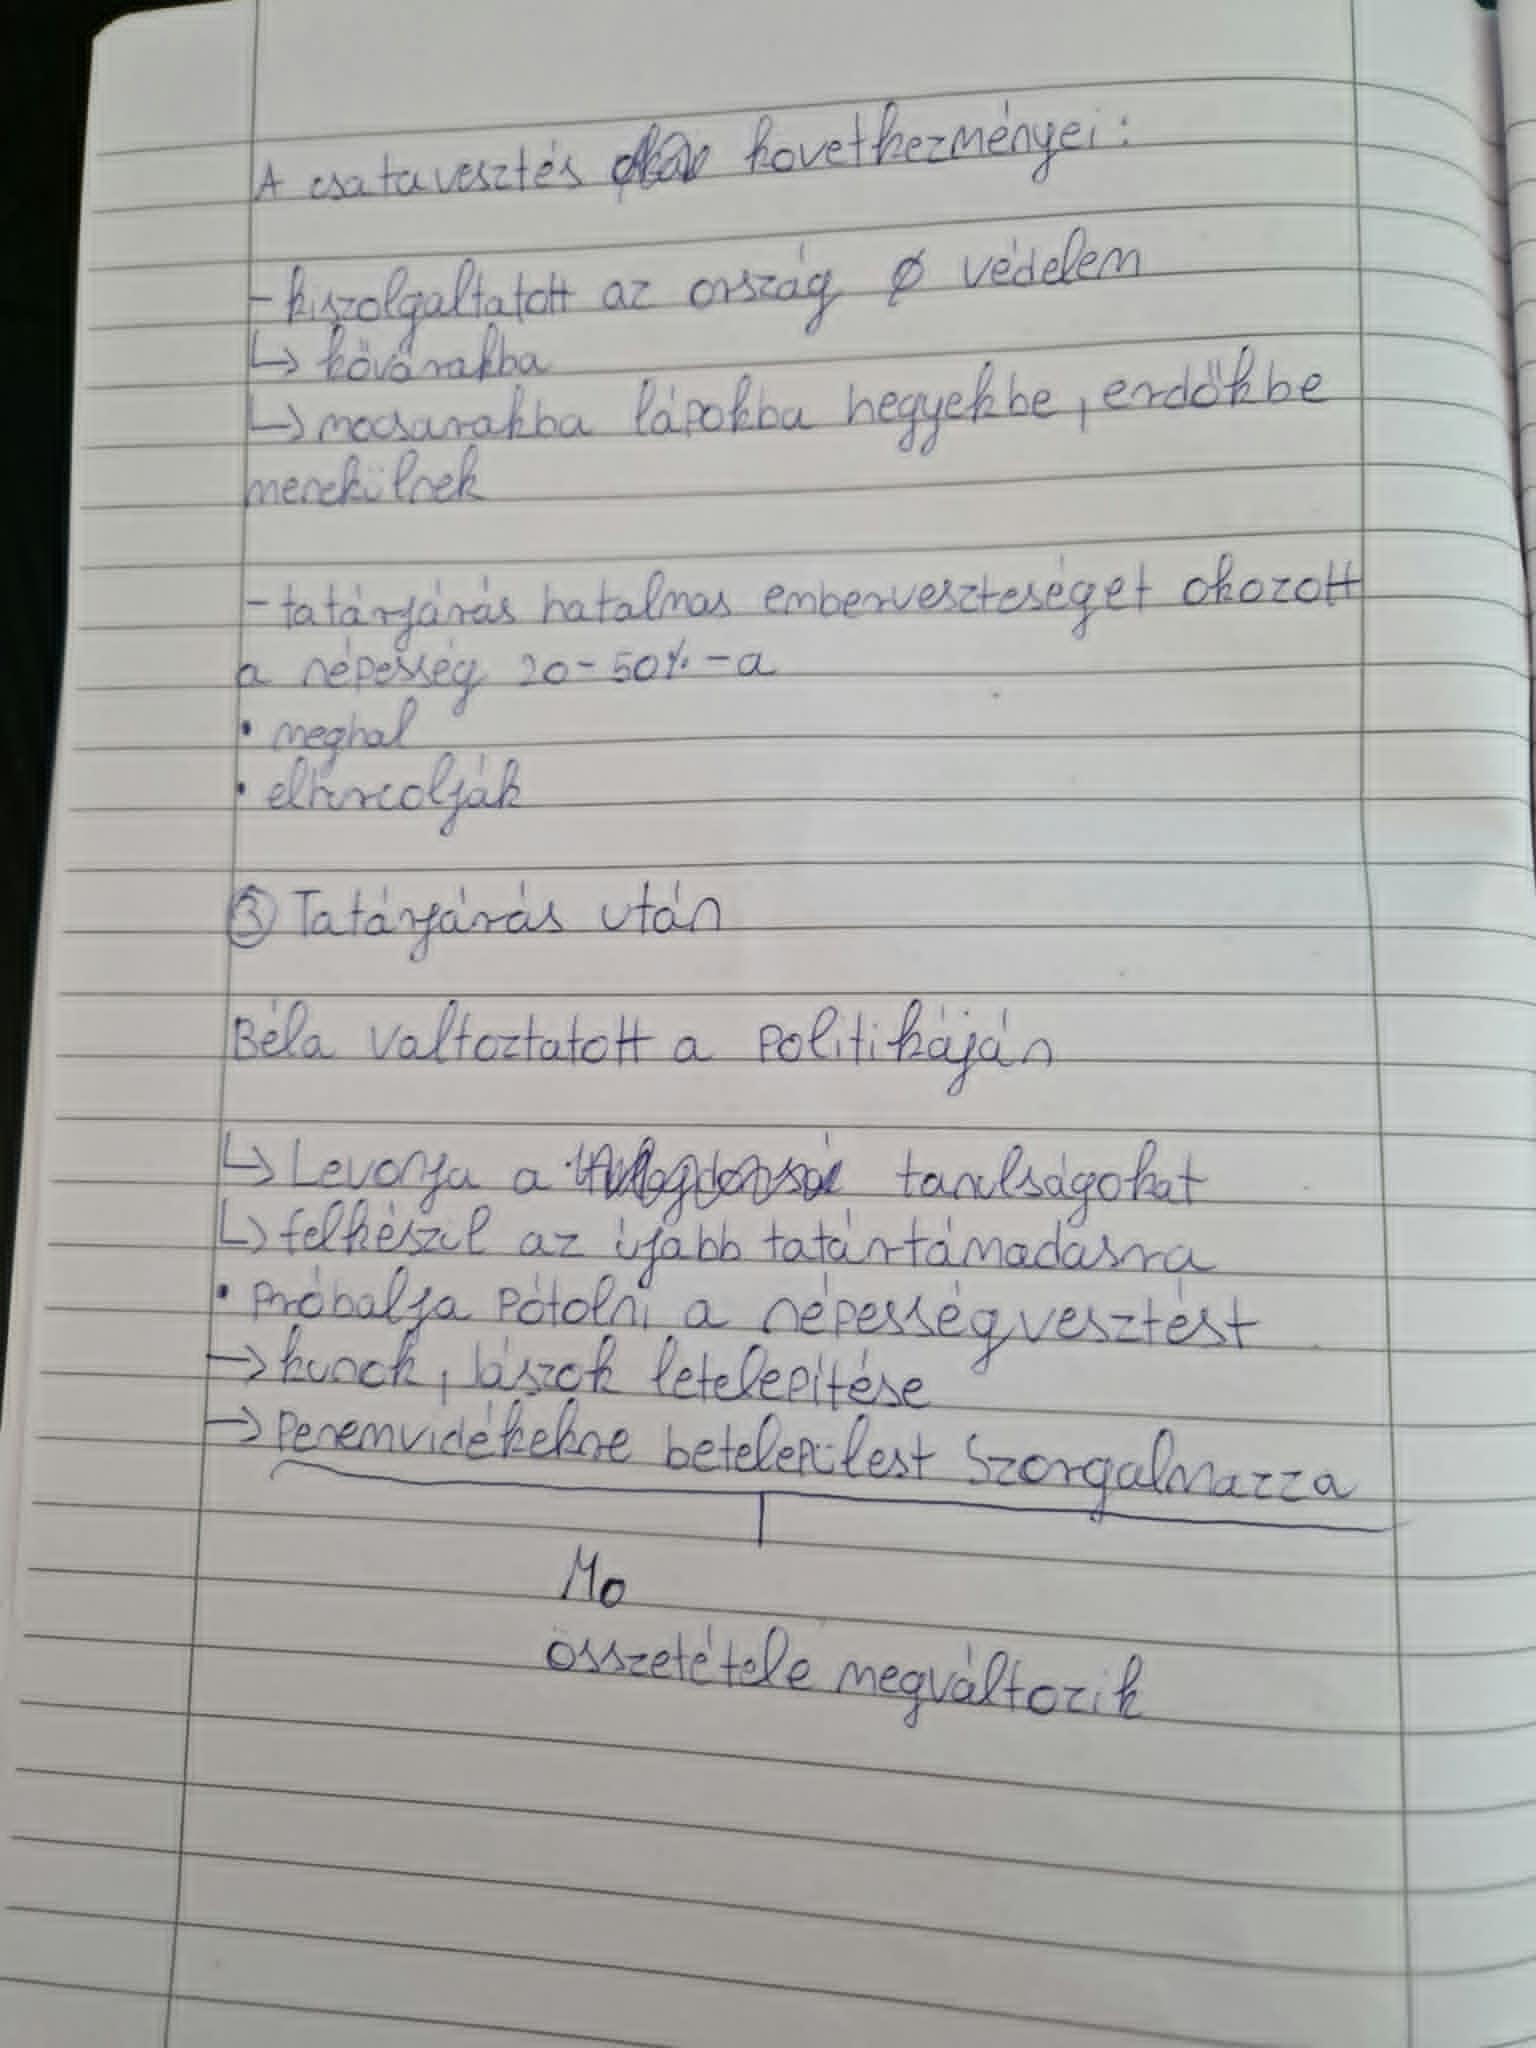 A csatavesztés következményei:
- kiszolgaltatott az ország Ø védelem
↳ kővárakba
↳ mocsarakba lápokba hegyekbe, erdőkbe
menekülnek
- tatárjárás hatalmas emberveszteséget okozott
a népesség 20-50%-a
• meghal
• elhurcolják
③ Tatárjárás után
Béla valtoztatott a politikáján
↳ Levonja a tanulságokat
↳ felkészül az újabb tatártámadásra
• Próbálja pótolni a népességvesztést
→ kunok, Jászok letelepítése
→ Peremvidékekre betelepülest Szorgalmazza
Mo
összetétele megváltozik